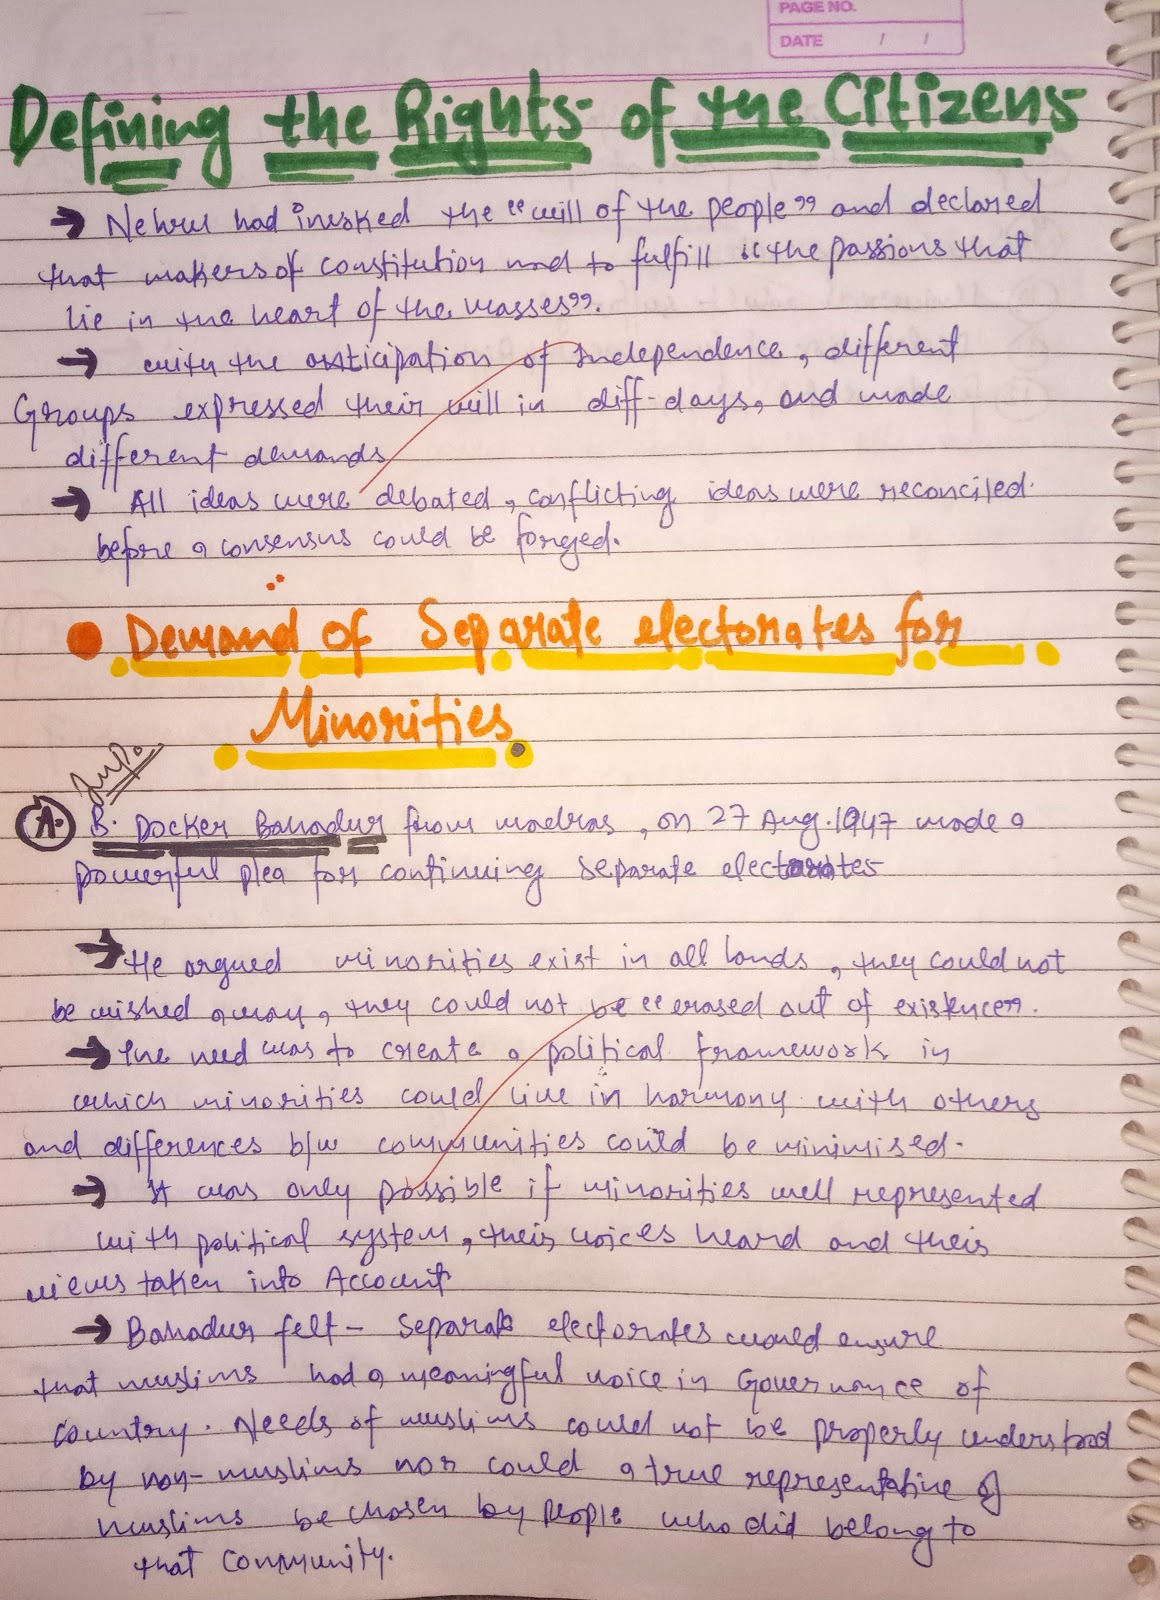 PAGE NO.
DATE / /
Defining the Rights of the Citizens
→ Nehru had invoked the "will of the people" and declared
that makers of constitution had to fulfill "the passions that
lie in the heart of the masses".
→ with the anticipation of Independence, different
Groups expressed their will in diff-days, and made
different demands
→ All ideas were debated, conflicting ideas were reconciled.
before a consensus could be forged.
● Demand of Separate electorates for
Minorities
Imp.
A. B. Pocker Bahadur from madras, on 27 Aug. 1947 made a
powerful plea for continuing separate electorates
→ He argued minorities exist in all lands, they could not
be wished away, they could not be "erased out of existence".
→ The need was to create a political framework in
which minorities could live in harmony with others
and differences b/w communities could be minimised.
→ It was only possible if minorities well represented
with political system, their voices heard and their
views taken into Account
→ Bahadur felt - Separate electorates would ensure
that muslims had a meaningful voice in Governance of
country. Needs of muslims could not be properly understood
by non-muslims nor could a true representative of
muslims be chosen by people who did belong to
that community.